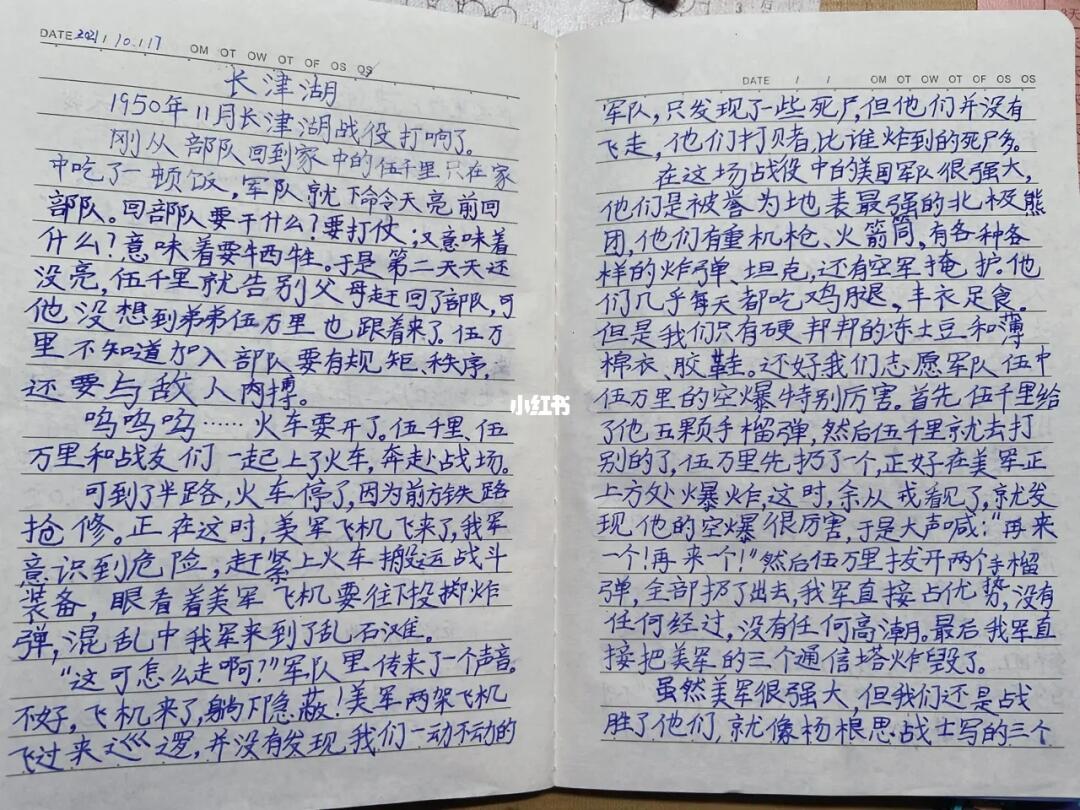 DATE 2021 / 10 / 17 OM OT OW OT OF OS OS
长津湖
1950年11月长津湖战役打响了。
刚从部队回到家中的伍千里只在家
中吃了一顿饭，军队就下命令天亮前回
部队。回部队要干什么？要打仗；又意味着
什么？意味着要牺牲。于是第二天天还
没亮，伍千里就告别父母赶回了部队，可
他没想到弟弟伍万里也跟着来了。伍万
里不知道加入部队要有规矩、秩序，
还要与敌人肉搏。
呜呜呜……火车要开了。伍千里、伍
万里和战友们一起上了火车，奔赴战场。
可到了半路，火车停了，因为前方铁路
抢修。正在这时，美军飞机飞来了，我军
意识到危险，赶紧上火车搬运战斗
装备，眼看着美军飞机要往下投掷炸
弹，混乱中我军来到了乱石滩。
“这可怎么走啊？”军队里传来了一个声音。
不好，飞机来了，躺下隐蔽！美军两架飞机
飞过来巡逻，并没有发现我们一动不动的
DATE / / OM OT OW OT OF OS OS
军队，只发现了一些死尸，但他们并没有
飞走，他们打赌，比谁炸到的死尸多。
在这场战役中的美国军队很强大，
他们是被誉为地表最强的北极熊
团，他们有重机枪、火箭筒，有各种各
样的炸弹、坦克，还有空军掩护。他
们几乎每天都吃鸡腿，丰衣足食。
但是我们只有硬邦邦的冻土豆和薄
棉衣、胶鞋。还好我们志愿军队伍中
伍万里的空爆特别厉害。首先伍千里给
了他五颗手榴弹，然后伍千里就去打
别的了，伍万里先扔了一个，正好在美军正
上方处爆炸，这时，余从戎看见了，就发
现他的空爆很厉害，于是大声喊：“再来
一个！再来一个！”然后伍万里拔开两个手榴
弹，全部扔了出去，我军直接占优势，没有
任何经过，没有任何高潮。最后我军直
接把美军的三个通信塔炸毁了。
虽然美军很强大，但我们还是战
胜了他们，就像杨根思战士写的三个
小红书